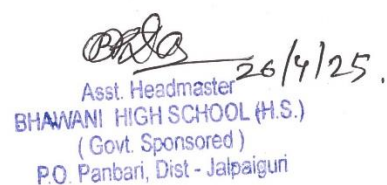 26/4/25.
Asst. Headmaster
BHAWANI HIGH SCHOOL (H.S.)
( Govt. Sponsored )
P.O. Panbari, Dist - Jalpaiguri